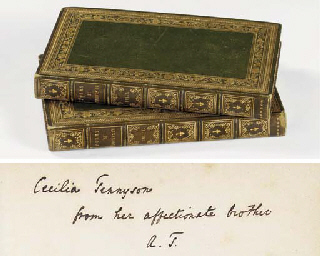 Cecilia Tennyson
from her affectionate brother
A. T.